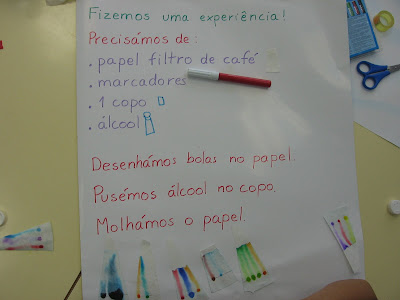 Fizemos uma experiência!
Precisámos de:
. papel filtro de café
. marcadores
. 1 copo
. álcool
Desenhámos bolas no papel.
Pusémos álcool no copo.
Molhámos o papel.